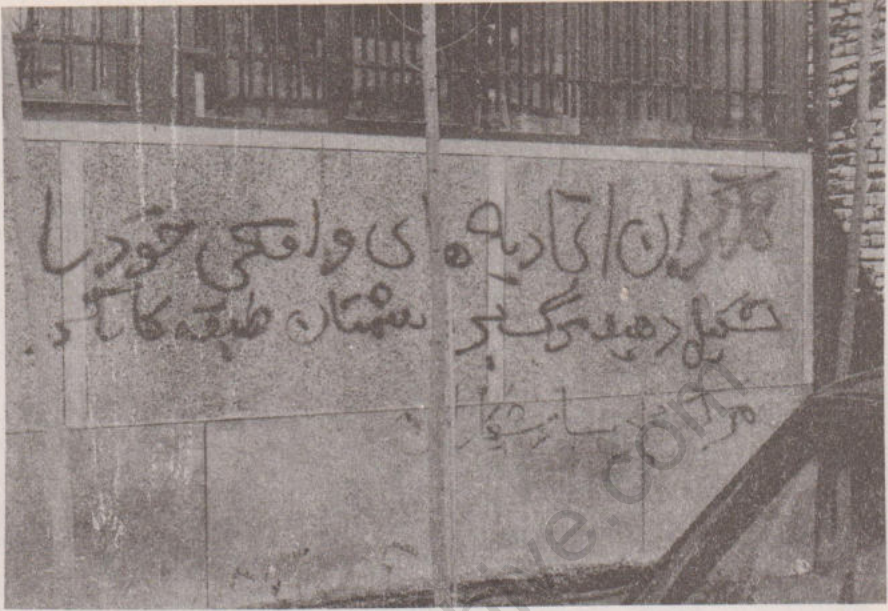 کارگران اتحادیه های واقعی خود را
تشکیل دهید مرگ بر دشمنان طبقه کارگر
مرگ بر سازشکاران